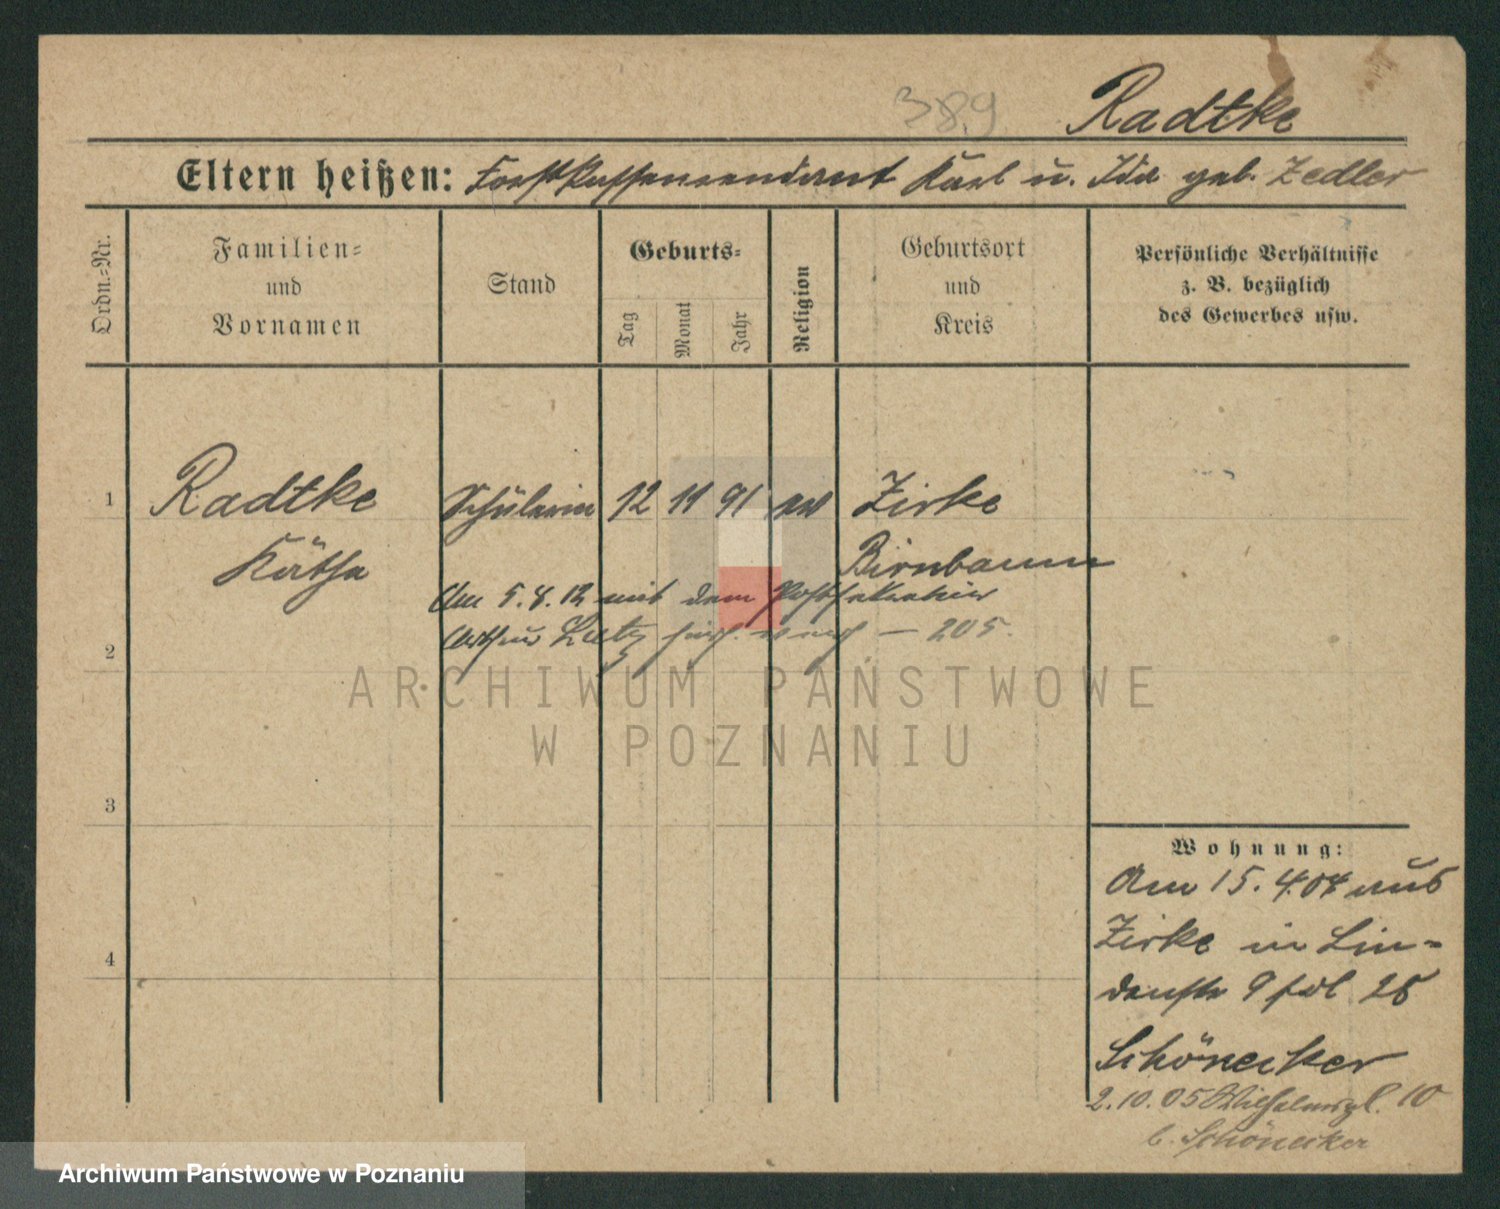 389
Radtke
Eltern heißen: Forstkassenrendant Karl u. Ida geb. Zedler
Ordn.-Nr.
Familien-
und
Vornamen
Stand
Geburts-
Tag
Monat
Jahr
Religion
Geburtsort
und
Kreis
Persönliche Verhältnisse
z. B. bezüglich
des Gewerbes usw.
1 Radtke Schülerin 12 11 91 ev Zirke
Käthe Birnbaum
Am 5. 8. 12 mit dem Postsekretär
Arthur Lutz – 205.
2
3
4
ARCHIWUM PAŃSTWOWE
W POZNANIU
Wohnung:
Am 15. 4. 04 aus
Zirke in Lin-
denstr 9 bei
Schönecker
2. 10. 05 Wilhelmspl. 10
b. Schönecker
Archiwum Państwowe w Poznaniu